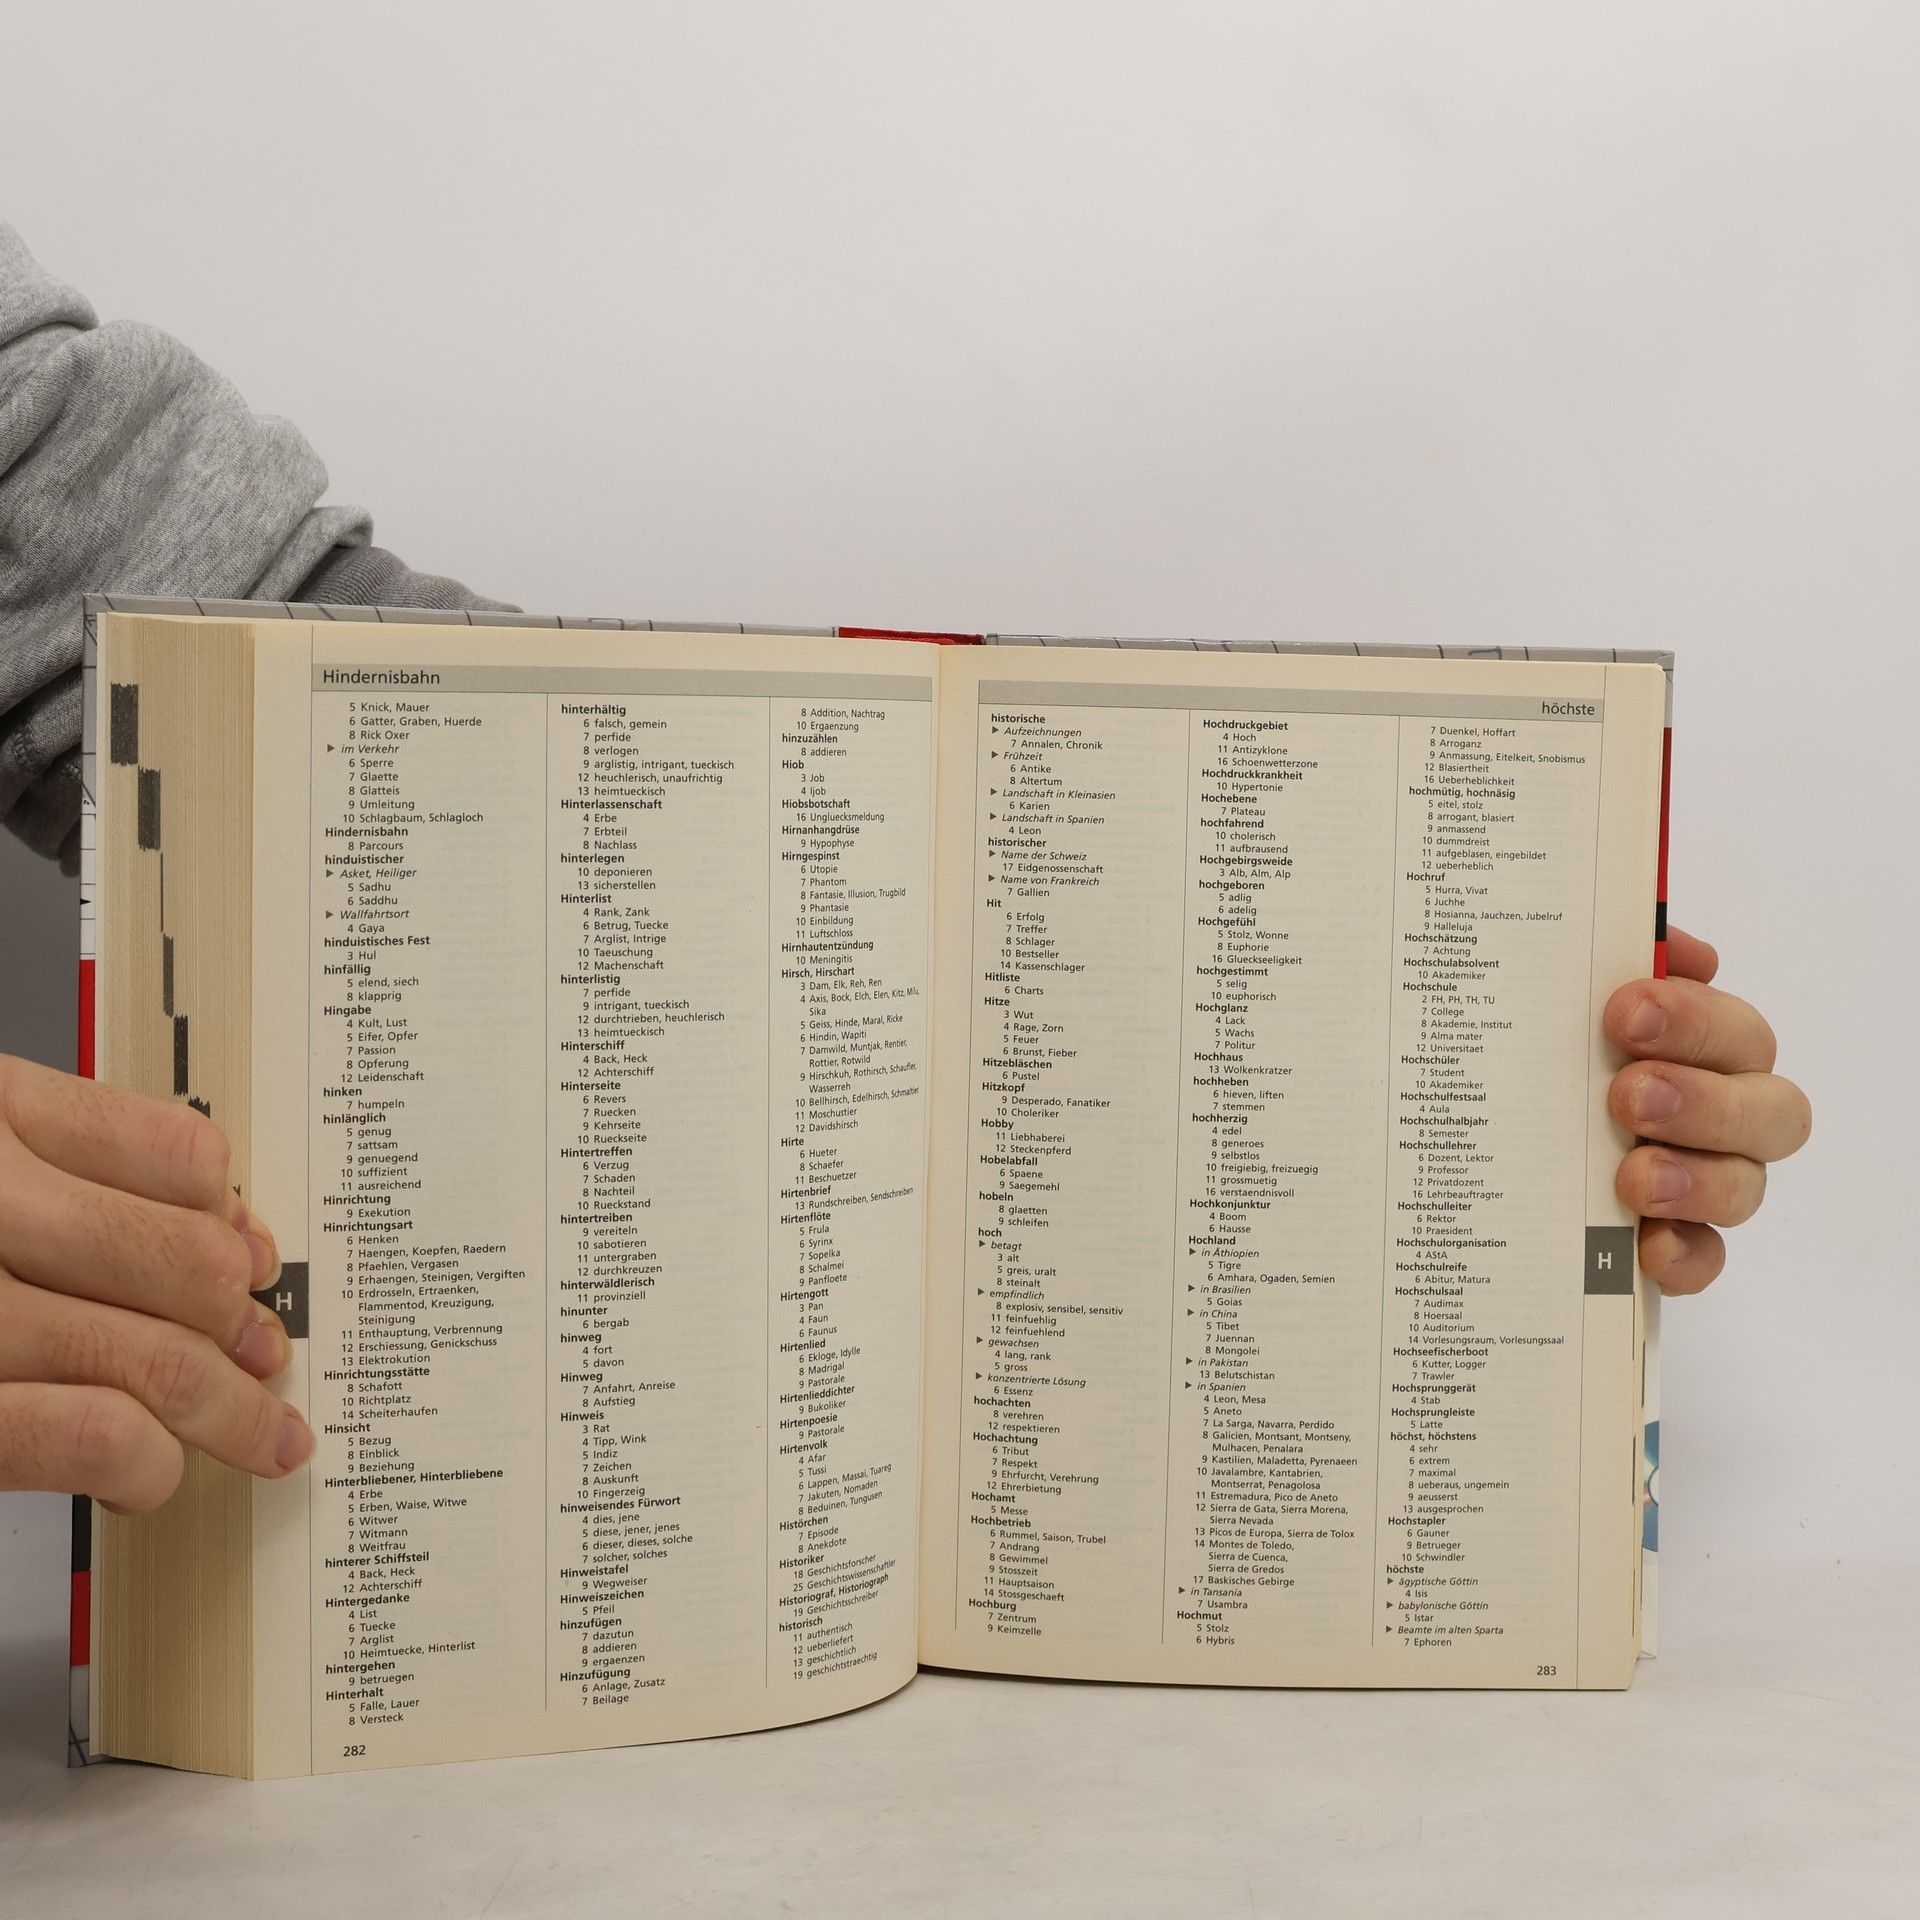 Hindernisbahn
5 Knick, Mauer
6 Gatter, Graben, Huerde
8 Rick Oxer
▶ im Verkehr
6 Sperre
7 Glaette
8 Glatteis
9 Umleitung
10 Schlagbaum, Schlagloch
Hindernisbahn
8 Parcours
hinduistischer
▶ Asket, Heiliger
5 Sadhu
6 Saddhu
▶ Wallfahrtsort
4 Gaya
hinduistisches Fest
3 Hul
hinfällig
5 elend, siech
8 klapprig
Hingabe
4 Kult, Lust
5 Eifer, Opfer
7 Passion
8 Opferung
12 Leidenschaft
hinken
7 humpeln
hinlänglich
5 genug
7 sattsam
9 genuegend
10 suffizient
11 ausreichend
Hinrichtung
9 Exekution
Hinrichtungsart
6 Henken
7 Haengen, Koepfen, Raedern
8 Pfaehlen, Vergasen
9 Erhaengen, Steinigen, Vergiften
10 Erdrosseln, Ertraenken,
Flammentod, Kreuzigung,
Steinigung
11 Enthauptung, Verbrennung
12 Erschiessung, Genickschuss
13 Elektrokution
Hinrichtungsstätte
8 Schafott
10 Richtplatz
14 Scheiterhaufen
Hinsicht
5 Bezug
8 Einblick
9 Beziehung
Hinterbliebener, Hinterbliebene
4 Erbe
5 Erben, Waise, Witwe
6 Witwer
7 Witmann
8 Weitfrau
hinterer Schiffsteil
4 Back, Heck
12 Achterschiff
Hintergedanke
4 List
6 Tuecke
7 Arglist
10 Heimtuecke, Hinterlist
hintergehen
9 betruegen
Hinterhalt
5 Falle, Lauer
8 Versteck
hinterhältig
6 falsch, gemein
7 perfide
8 verlogen
9 arglistig, intrigant, tueckisch
12 heuchlerisch, unaufrichtig
13 heimtueckisch
Hinterlassenschaft
4 Erbe
7 Erbteil
8 Nachlass
hinterlegen
10 deponieren
13 sicherstellen
Hinterlist
4 Rank, Zank
6 Betrug, Tuecke
7 Arglist, Intrige
10 Taeuschung
12 Machenschaft
hinterlistig
7 perfide
9 intrigant, tueckisch
12 durchtrieben, heuchlerisch
13 heimtueckisch
Hinterschiff
4 Back, Heck
12 Achterschiff
Hinterseite
6 Revers
7 Ruecken
9 Kehrseite
10 Rueckseite
Hintertreffen
6 Verzug
7 Schaden
8 Nachteil
10 Rueckstand
hintertreiben
9 vereiteln
10 sabotieren
11 untergraben
12 durchkreuzen
hinterwäldlerisch
11 provinziell
hinunter
6 bergab
hinweg
4 fort
5 davon
Hinweg
7 Anfahrt, Anreise
8 Aufstieg
Hinweis
3 Rat
4 Tipp, Wink
5 Indiz
7 Zeichen
8 Auskunft
10 Fingerzeig
hinweisendes Fürwort
4 dies, jene
5 diese, jener, jenes
6 dieser, dieses, solche
7 solcher, solches
Hinweistafel
9 Wegweiser
Hinweiszeichen
5 Pfeil
hinzufügen
7 dazutun
8 addieren
9 ergaenzen
Hinzufügung
6 Anlage, Zusatz
7 Beilage
8 Addition, Nachtrag
10 Ergaenzung
hinzuzählen
8 addieren
Hiob
3 Job
4 Ijob
Hiobsbotschaft
16 Ungluecksmeldung
Hirnanhangdrüse
9 Hypophyse
Hirngespinst
6 Utopie
7 Phantom
8 Fantasie, Illusion, Trugbild
9 Phantasie
10 Einbildung
11 Luftschloss
Hirnhautentzündung
10 Meningitis
Hirsch, Hirschart
3 Dam, Elk, Reh, Ren
4 Axis, Bock, Elch, Elen, Kitz, Milu,
Sika
5 Geiss, Hinde, Maral, Ricke
6 Hindin, Wapiti
7 Damwild, Muntjak, Rentier,
Rottier, Rotwild
9 Hirschkuh, Rothirsch, Schaufler,
Wasserreh
10 Bellhirsch, Edelhirsch, Schmaltier
11 Moschustier
12 Davidshirsch
Hirte
6 Hueter
8 Schaefer
11 Beschuetzer
Hirtenbrief
13 Rundschreiben, Sendschreiben
Hirtenflöte
5 Frula
6 Syrinx
7 Sopelka
8 Schalmei
9 Panfloete
Hirtengott
3 Pan
4 Faun
6 Faunus
Hirtenlied
6 Ekloge, Idylle
8 Madrigal
9 Pastorale
Hirtenlieddichter
9 Bukoliker
Hirtenpoesie
9 Pastorale
Hirtenvolk
4 Afar
5 Tussi
6 Lappen, Massai, Tuareg
7 Jakuten, Nomaden
8 Beduinen, Tungusen
Histörchen
7 Episode
8 Anekdote
Historiker
18 Geschichtsforscher
25 Geschichtswissenschaftler
Historiograf, Historiograph
19 Geschichtsschreiber
historisch
11 authentisch
12 ueberliefert
13 geschichtlich
19 geschichtstraechtig
H
282
höchste
historische
▶ Aufzeichnungen
7 Annalen, Chronik
▶ Frühzeit
6 Antike
8 Altertum
▶ Landschaft in Kleinasien
6 Karien
▶ Landschaft in Spanien
4 Leon
historischer
▶ Name der Schweiz
17 Eidgenossenschaft
▶ Name von Frankreich
7 Gallien
Hit
6 Erfolg
7 Treffer
8 Schlager
10 Bestseller
14 Kassenschlager
Hitliste
6 Charts
Hitze
3 Wut
4 Rage, Zorn
5 Feuer
6 Brunst, Fieber
Hitzebläschen
6 Pustel
Hitzkopf
9 Desperado, Fanatiker
10 Choleriker
Hobby
11 Liebhaberei
12 Steckenpferd
Hobelabfall
6 Spaene
9 Saegemehl
hobeln
8 glaetten
9 schleifen
hoch
▶ betagt
3 alt
5 greis, uralt
8 steinalt
▶ empfindlich
8 explosiv, sensibel, sensitiv
11 feinfuehlig
12 feinfuehlend
▶ gewachsen
4 lang, rank
5 gross
▶ konzentrierte Lösung
6 Essenz
hochachten
8 verehren
12 respektieren
Hochachtung
6 Tribut
7 Respekt
9 Ehrfurcht, Verehrung
12 Ehrerbietung
Hochamt
5 Messe
Hochbetrieb
6 Rummel, Saison, Trubel
7 Andrang
8 Gewimmel
9 Stosszeit
11 Hauptsaison
14 Stossgeschaeft
Hochburg
7 Zentrum
9 Keimzelle
Hochdruckgebiet
4 Hoch
11 Antizyklone
16 Schoenwetterzone
Hochdruckkrankheit
10 Hypertonie
Hochebene
7 Plateau
hochfahrend
10 cholerisch
11 aufbrausend
Hochgebirgsweide
3 Alb, Alm, Alp
hochgeboren
5 adlig
6 adelig
Hochgefühl
5 Stolz, Wonne
8 Euphorie
16 Glueckseeligkeit
hochgestimmt
5 selig
10 euphorisch
Hochglanz
4 Lack
5 Wachs
7 Politur
Hochhaus
13 Wolkenkratzer
hochheben
6 hieven, liften
7 stemmen
hochherzig
4 edel
8 generoes
9 selbstlos
10 freigiebig, freizuegig
11 grossmuetig
16 verstaendnisvoll
Hochkonjunktur
4 Boom
6 Hausse
Hochland
▶ in Äthiopien
5 Tigre
6 Amhara, Ogaden, Semien
▶ in Brasilien
5 Goias
▶ in China
5 Tibet
7 Juennan
8 Mongolei
▶ in Pakistan
13 Belutschistan
▶ in Spanien
4 Leon, Mesa
5 Aneto
7 La Sarga, Navarra, Perdido
8 Galicien, Montsant, Montseny,
Mulhacen, Penalara
9 Kastilien, Maladetta, Pyrenaeen
10 Javalambre, Kantabrien,
Montserrat, Penagolosa
11 Estremadura, Pico de Aneto
12 Sierra de Gata, Sierra Morena,
Sierra Nevada
13 Picos de Europa, Sierra de Tolox
14 Montes de Toledo,
Sierra de Cuenca,
Sierra de Gredos
17 Baskisches Gebirge
▶ in Tansania
7 Usambra
Hochmut
5 Stolz
6 Hybris
7 Duenkel, Hoffart
8 Arroganz
9 Anmassung, Eitelkeit, Snobismus
12 Blasiertheit
16 Ueberheblichkeit
hochmütig, hochnäsig
5 eitel, stolz
8 arrogant, blasiert
9 anmassend
10 dummdreist
11 aufgeblasen, eingebildet
12 ueberheblich
Hochruf
5 Hurra, Vivat
6 Juchhe
8 Hosianna, Jauchzen, Jubelruf
9 Halleluja
Hochschätzung
7 Achtung
Hochschulabsolvent
10 Akademiker
Hochschule
2 FH, PH, TH, TU
7 College
8 Akademie, Institut
9 Alma mater
12 Universitaet
Hochschüler
7 Student
10 Akademiker
Hochschulfestsaal
4 Aula
Hochschulhalbjahr
8 Semester
Hochschullehrer
6 Dozent, Lektor
9 Professor
12 Privatdozent
16 Lehrbeauftragter
Hochschulleiter
6 Rektor
10 Praesident
Hochschulorganisation
4 AStA
Hochschulreife
6 Abitur, Matura
Hochschulsaal
7 Audimax
8 Hoersaal
10 Auditorium
14 Vorlesungsraum, Vorlesungssaal
Hochseefischerboot
6 Kutter, Logger
7 Trawler
Hochsprunggerät
4 Stab
Hochsprungleiste
5 Latte
höchst, höchstens
4 sehr
6 extrem
7 maximal
8 ueberaus, ungemein
9 aeusserst
13 ausgesprochen
Hochstapler
6 Gauner
9 Betrueger
10 Schwindler
höchste
▶ ägyptische Göttin
4 Isis
▶ babylonische Göttin
5 Istar
▶ Beamte im alten Sparta
7 Ephoren
H
283